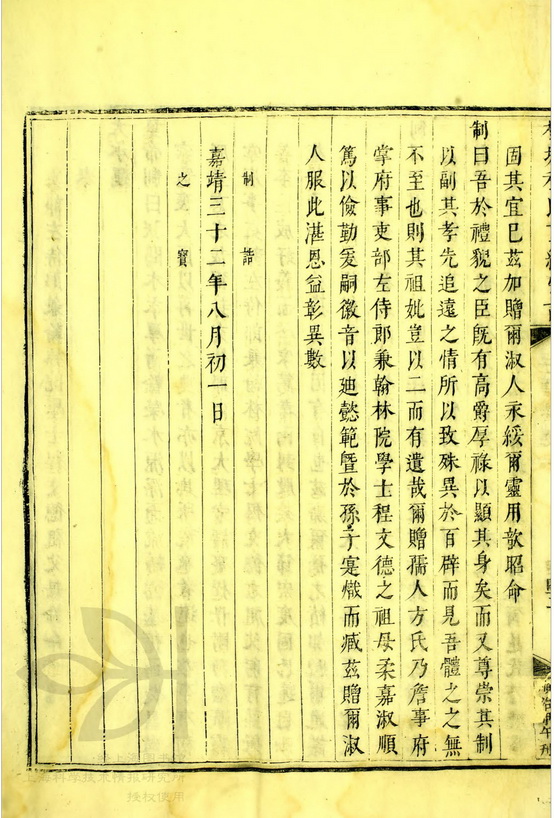 固其宜已茲加贈爾淑人永綏爾靈用歆昭命
制曰吾於禮貌之臣旣有高爵厚祿以顯其身矣而又尊崇其制
以副其孝先追遠之情所以致殊異於百辟而見吾體之之無
不至也則其祖妣豈以二而有遺哉爾贈孺人方氏乃詹事府
掌府事吏部左侍郎兼翰林院學士程文德之祖母柔嘉淑順
篤以儉勤爰嗣徽音以廸懿範曁於孫子寔熾而臧茲贈爾淑
人服此湛恩益彰異數
嘉靖三十二年八月初一日
制誥
之寶
授权使用